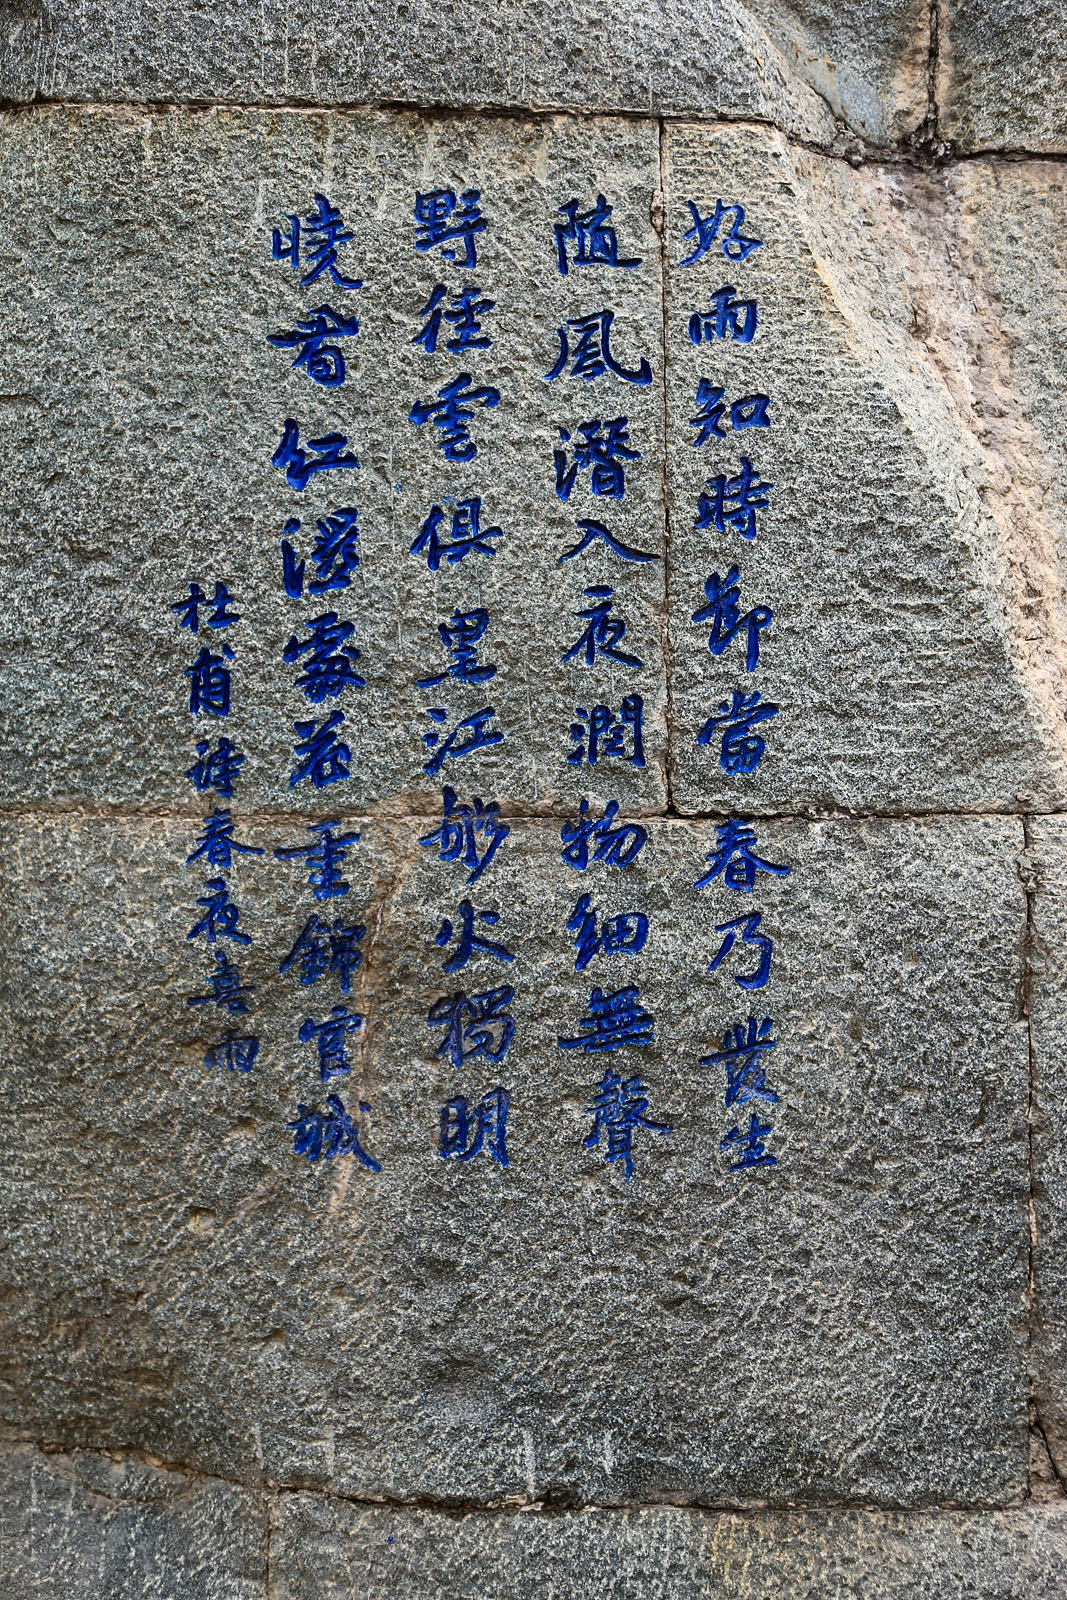 好雨知時節當春乃發生
隨風潛入夜潤物細無聲
野徑雲俱黑江船火獨明
曉看紅濕處花重錦官城
杜甫詩春夜喜雨